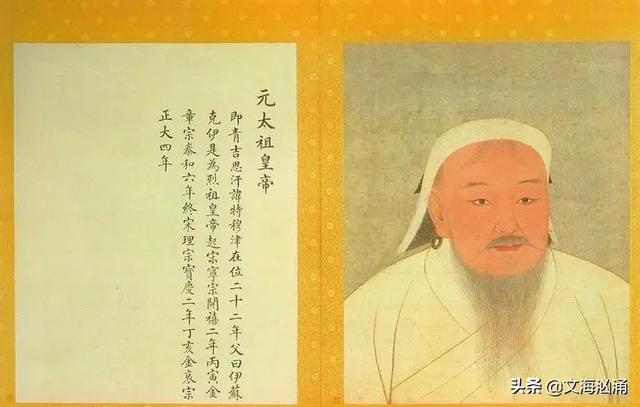 元太祖皇帝
即青吉思汗諱特穆津在位二十二年父曰伊蘇
克伊是為烈祖皇帝起宗寧宗開禧二年丙寅金
章宗泰和六年終宋理宗寶慶二年丁亥金哀宗
正大四年
头条 @文海汹涌